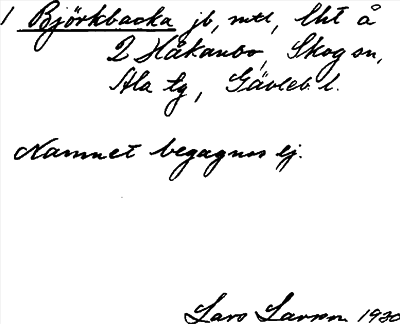 1 Björkbacka jb, mtl, lht å
2 Håkanbo, Skog sn,
Ala tg, Gävleb l.
Namnet begagnas ej.
Lars Larson 1930